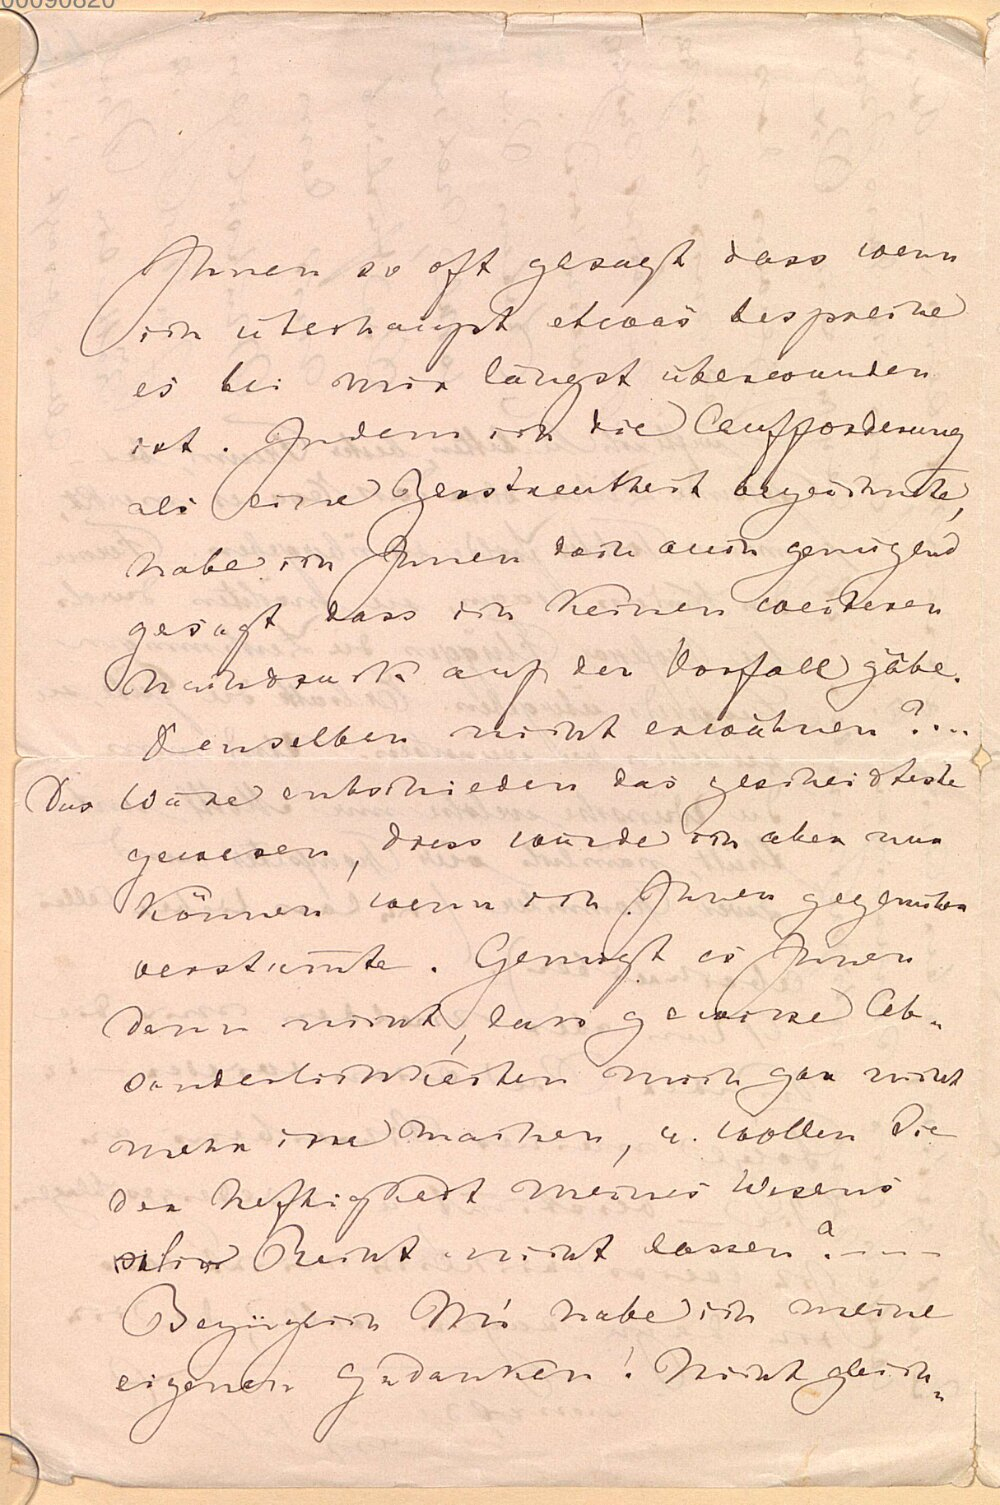 00090820
Ihnen so oft gesagt dass wenn
ich überhaupt etwas bespreche
es bei mir längst überwunden
ist. Indem ich die Aufforderung
als eine Zerstreutheit bezeichnete,
habe ich Ihnen doch auch genügend
gesagt dass ich keinen weiteren
Nachdruck auf den Vorfall gäbe.
Denselben nicht erwähnen?...
Das wäre entschieden das gescheidteste
gewesen, dies würde ich aber nur
können wenn ich Ihnen gegenüber
verstummte. Genügt es Ihnen
denn nicht, dass gewisse Ab-
sonderlichkeiten mich gar nicht
mehr irre machen, u. wollen Sie
der Heftigkeit meines Wesens
Recht nicht lassen?----
Bezüglich Mi's habe ich meine
eigenen Gedanken! Nicht gleich-